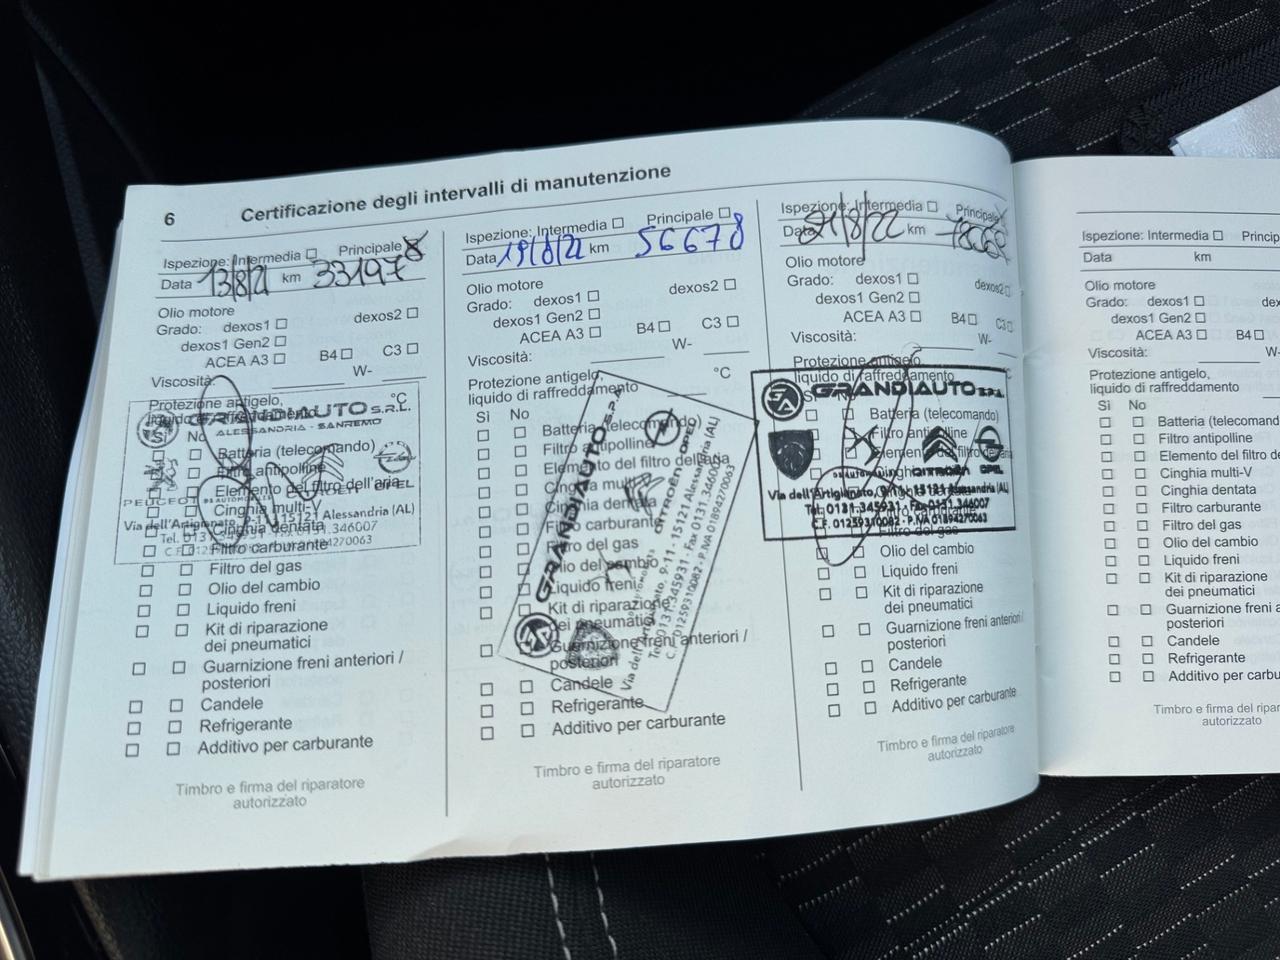 6 Certificazione degli intervalli di manutenzione
Ispezione: Intermedia Principale
Data 13/8/21 km 33197
Olio motore
Grado: dexos1 dexos2
dexos1 Gen2
ACEA A3 B4 C3
Viscosità: W-
Protezione antigelo,
liquido di raffreddamento °C
Sì No
GRANDIAUTO S.R.L.
ALESSANDRIA - SANREMO
Batteria (telecomando)
Filtro antipolline
Elemento del filtro dell'aria
PEUGEOT OPEL
Cinghia multi-V
Via dell'Artigianato, 9-11 - 15121 Alessandria (AL)
Cinghia dentata
Tel. 0131.345931 - Fax 0131.346007
Filtro carburante
Filtro del gas
Olio del cambio
Liquido freni
Kit di riparazione
dei pneumatici
Guarnizione freni anteriori /
posteriori
Candele
Refrigerante
Additivo per carburante
Timbro e firma del riparatore
autorizzato
Ispezione: Intermedia Principale
Data 19/8/22 km 56678
Olio motore
Grado: dexos1 dexos2
dexos1 Gen2
ACEA A3 B4 C3
Viscosità: W-
Protezione antigelo,
liquido di raffreddamento °C
Sì No
Batteria (telecomando)
Filtro antipolline
Elemento del filtro dell'aria
Cinghia multi-V
Cinghia dentata
Filtro carburante
Filtro del gas
Olio del cambio
Liquido freni
Kit di riparazione
dei pneumatici
Guarnizione freni anteriori /
posteriori
Candele
Refrigerante
Additivo per carburante
GRANDIAUTO S.P.A.
CITROËN OPEL
Via dell'Artigianato, 9-11 - 15121 Alessandria (AL)
Tel. 0131.345931 - Fax 0131.346007
C.F. 01259310082 - P.IVA 01894270063
Timbro e firma del riparatore
autorizzato
Ispezione: Intermedia Principale
Data 21/8/22 km
Olio motore
Grado: dexos1 dexos2
dexos1 Gen2
ACEA A3 B4 C3
Viscosità: W-
Protezione antigelo,
liquido di raffreddamento °C
GRANDIAUTO S.P.A.
Batteria (telecomando)
Filtro antipolline
Elemento del filtro
CITROËN OPEL
Via dell'Artigianato, 9-11 - 15121 Alessandria (AL)
Tel. 0131.345931 - Fax 0131.346007
C.F. 01259310082 - P.IVA 01894270063
Filtro del gas
Olio del cambio
Liquido freni
Kit di riparazione
dei pneumatici
Guarnizione freni anteriori /
posteriori
Candele
Refrigerante
Additivo per carburante
Timbro e firma del riparatore
autorizzato
Ispezione: Intermedia Princip
Data km
Olio motore
Grado: dexos1 dex
dexos1 Gen2
ACEA A3 B4
Viscosità: W-
Protezione antigelo,
liquido di raffreddamento
Sì No
Batteria (telecomand
Filtro antipolline
Elemento del filtro de
Cinghia multi-V
Cinghia dentata
Filtro carburante
Filtro del gas
Olio del cambio
Liquido freni
Kit di riparazione
dei pneumatici
Guarnizione freni a
posteriori
Candele
Refrigerante
Additivo per carbu
Timbro e firma del ripa
autorizzato